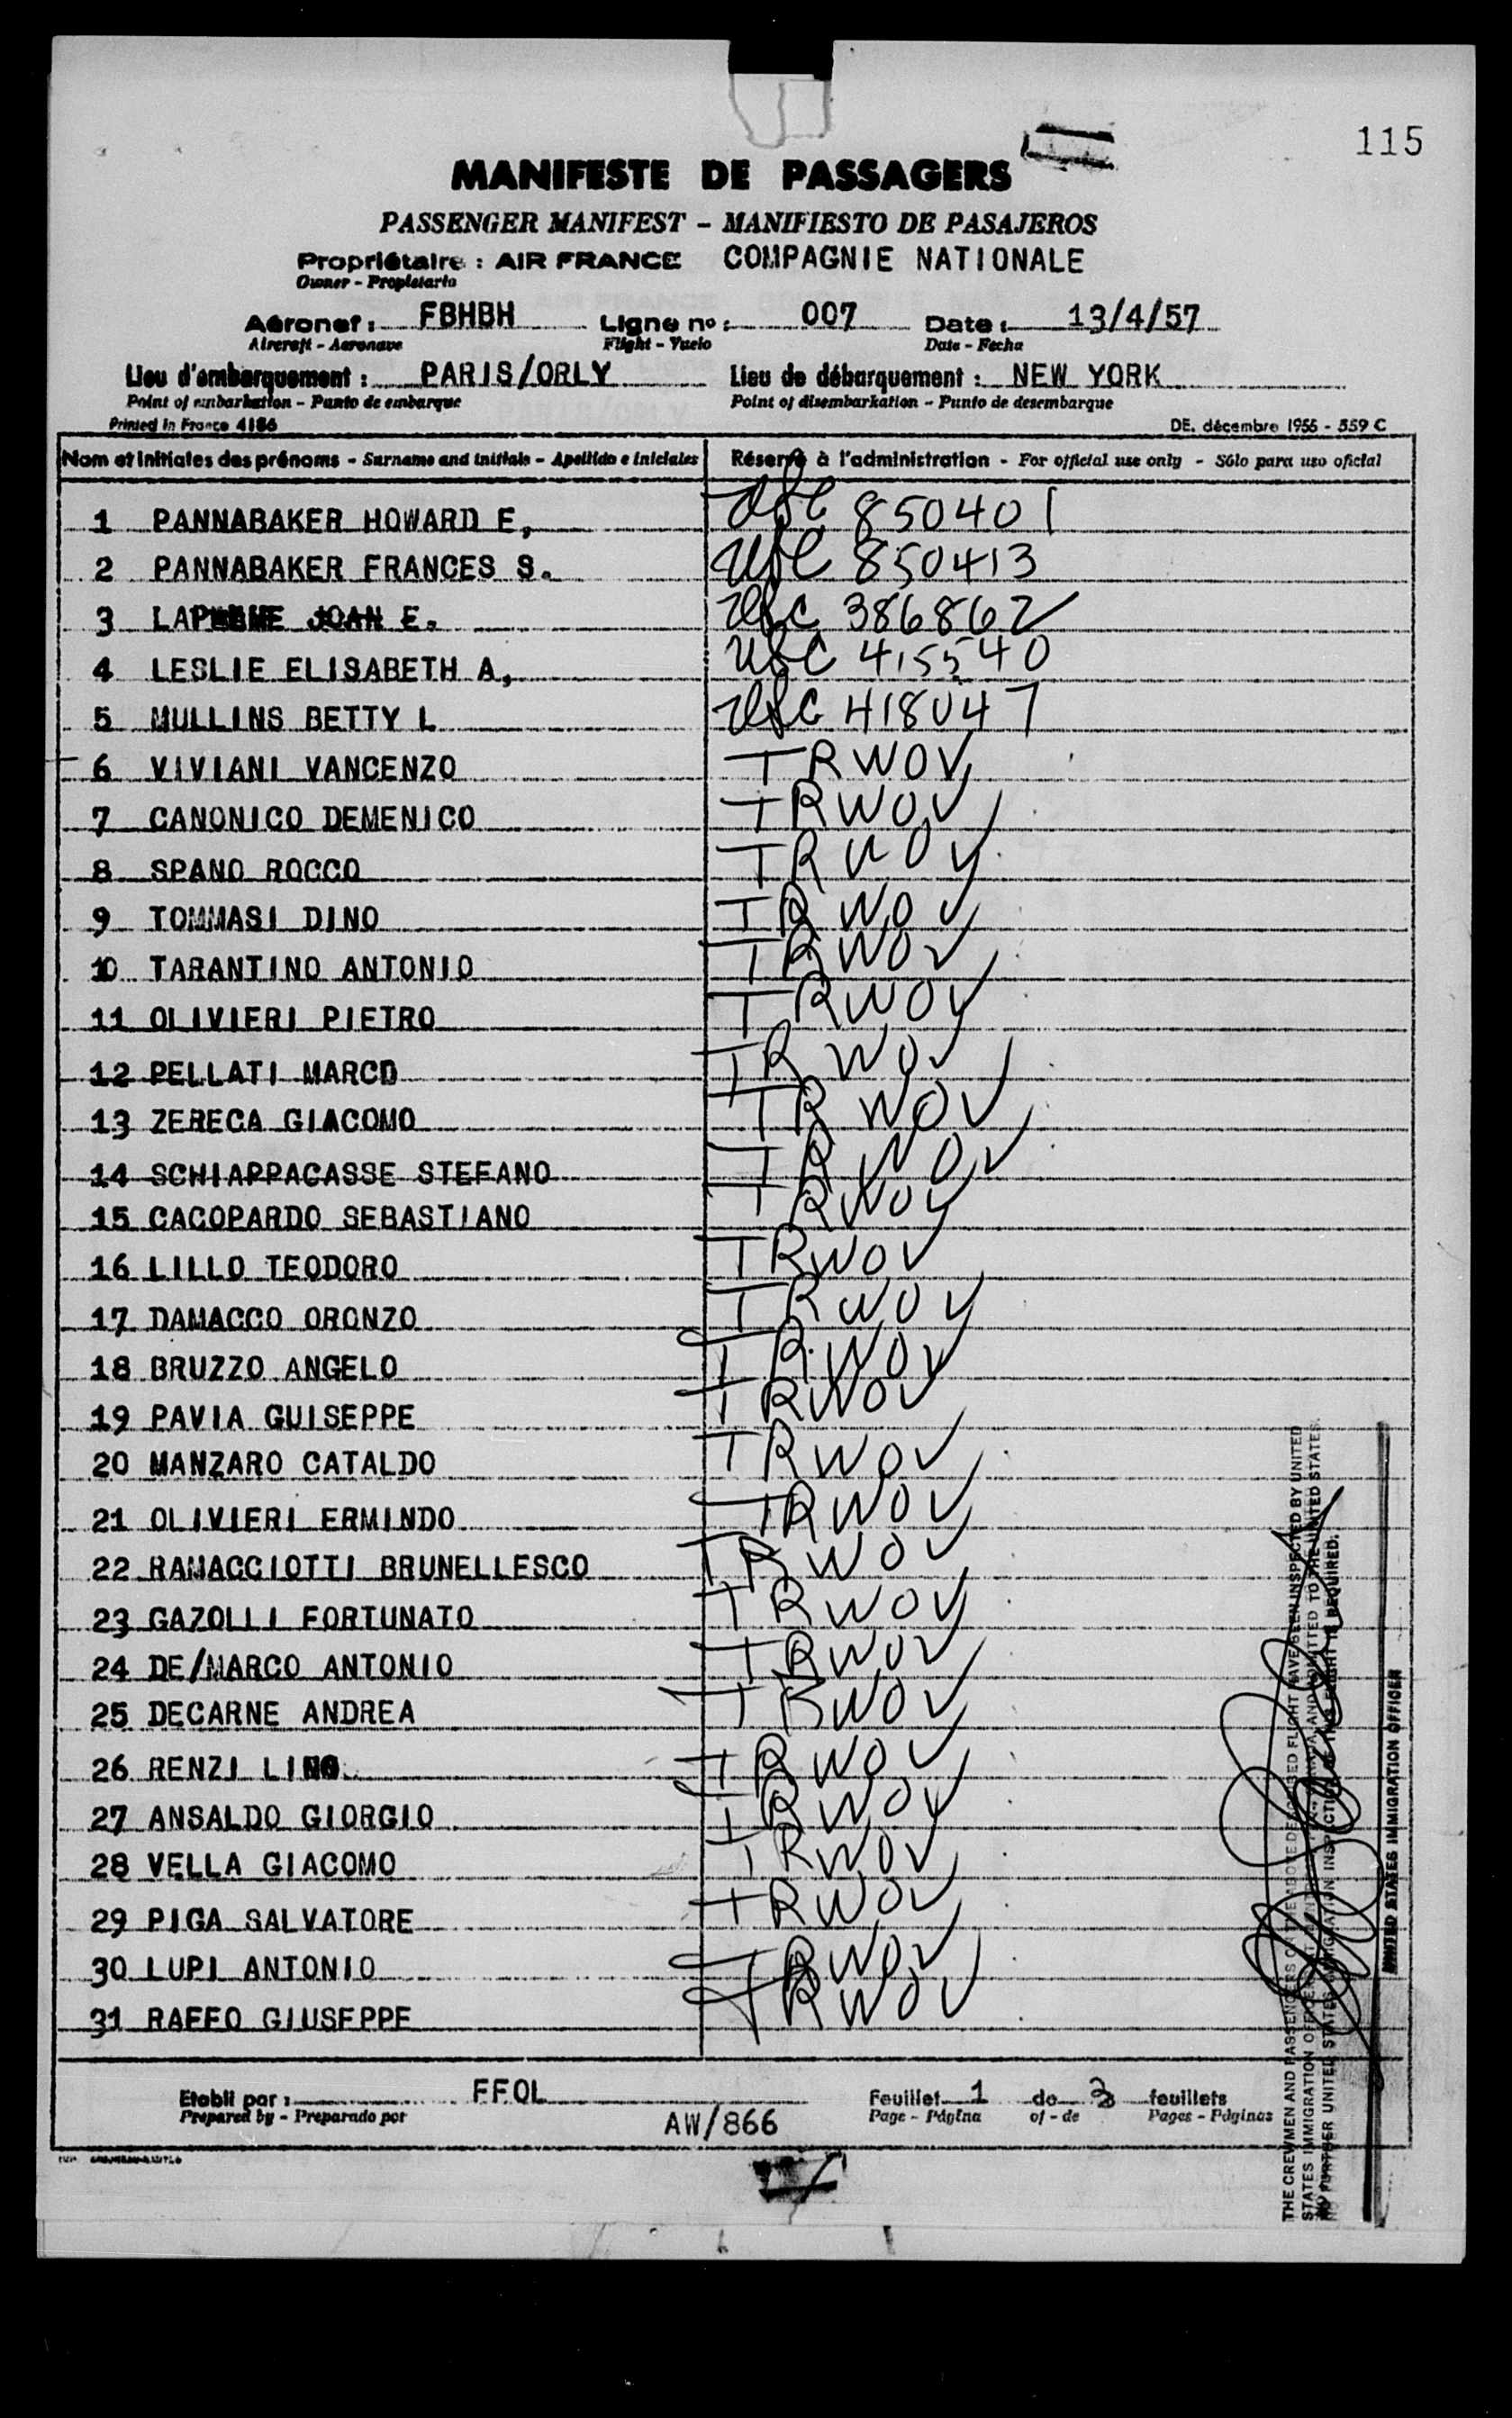 115
MANIFESTE DE PASSAGERS
PASSENGER MANIFEST - MANIFIESTO DE PASAJEROS
Propriétaire : AIR FRANCE COMPAGNIE NATIONALE
Owner - Propietario
Aéronef : FBHBH Ligne no : 007 Date : 13/4/57
Aircraft - Aeronave Flight - Vuelo Date - Fecha
Lieu d'embarquement : PARIS/ORLY Lieu de débarquement : NEW YORK
Point of embarkation - Punto de embarque Point of disembarkation - Punto de desembarque
Printed in France 4186 DE. décembre 1955 - 559 C
Nom et initiales des prénoms - Surname and initials - Apellido e iniciales Réservé à l'administration - For official use only - Sólo para uso oficial
1 PANNABAKER HOWARD E, USC 850401
2 PANNABAKER FRANCES S. USC 850413
3 JOAN E. USC 386862
4 LESLIE ELISABETH A, USC 415540
5 MULLINS BETTY L USC 418047
6 VIVIANI VANCENZO TRWOV
7 CANONICO DEMENICO TRWOV
8 SPANO ROCCO TRWOV
9 TOMMASI DINO TRWOV
10 TARANTINO ANTONIO TRWOV
11 OLIVIERI PIETRO TRWOV
12 PELLATI MARCO TRWOV
13 ZERECA GIACOMO TRWOV
14 SCHIAPPACASSE STEFANO TRWOV
15 CACOPARDO SEBASTIANO TRWOV
16 LILLO TEODORO TRWOV
17 DAMACCO ORONZO TRWOV
18 BRUZZO ANGELO TRWOV
19 PAVIA GUISEPPE TRWOV
20 MANZARO CATALDO TRWOV
21 OLIVIERI ERMINDO TRWOV
22 RAMACCIOTTI BRUNELLESCO TRWOV
23 GAZOLLI FORTUNATO TRWOV
24 DE/MARCO ANTONIO TRWOV
25 DECARNE ANDREA TRWOV
26 RENZI LINO TRWOV
27 ANSALDO GIORGIO TRWOV
28 VELLA GIACOMO TRWOV
29 PIGA SALVATORE TRWOV
30 LUPI ANTONIO TRWOV
31 RAFFO GIUSEPPE TRWOV
Etabli par : FFOL Feuillet 1 de 3 feuillets
Prepared by - Preparado por AW/866 Page - Página of - de Pages - Páginas
THE CREWMEN AND PASSENGERS ON THE ABOVE DESCRIBED FLIGHT HAVE BEEN INSPECTED BY UNITED
STATES IMMIGRATION AND ADMITTED TO THE UNITED STATES.
NO FURTHER UNITED STATES IMMIGRATION INSPECTION OF THIS FLIGHT IS REQUIRED.
UNITED STATES IMMIGRATION OFFICER